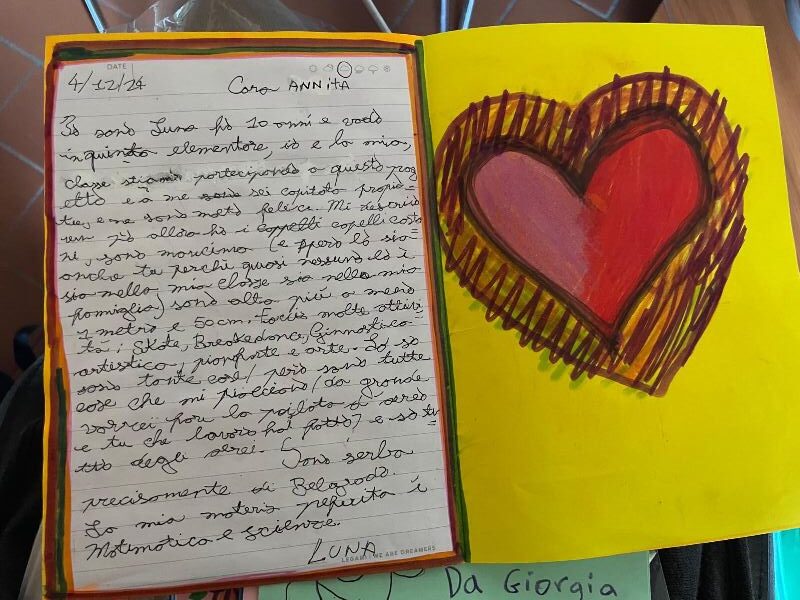 DATE
4/12/24 Cara ANNITA
Io sono Luna hò 10 anni e vado
in quinta elementare, io e la mia,
classe stiamo partecipando a questo prog
etto e à me sei capitata propio
tu, e ne sono molto felice. Mi descrivo
un pò allora hò i capelli capelli casta
ni, sono mancina (e spero lò sia
anche te perchè quasi nessuno lo è
sia nella mia classe sia nella mia
famiglia) sono alta più o meno
1 metro e 50 cm. Faccio molte attivi
tà: Skate, Breakedance, Ginnastica
artistica, pianoforte e arte. Lo so
sono tante cose/ però sono tutte
cose che mi piacciono/ da grande
vorrei fare la pilota di aereo
e tu che lavoro hai fatto? e sò tu
tto degli aerei. Sono serba
precisamente di Belgrado.
La mia materia preferita è
Matematica e scienze.
LUNA
LEGAMI WE ARE DREAMERS
Da Giorgia